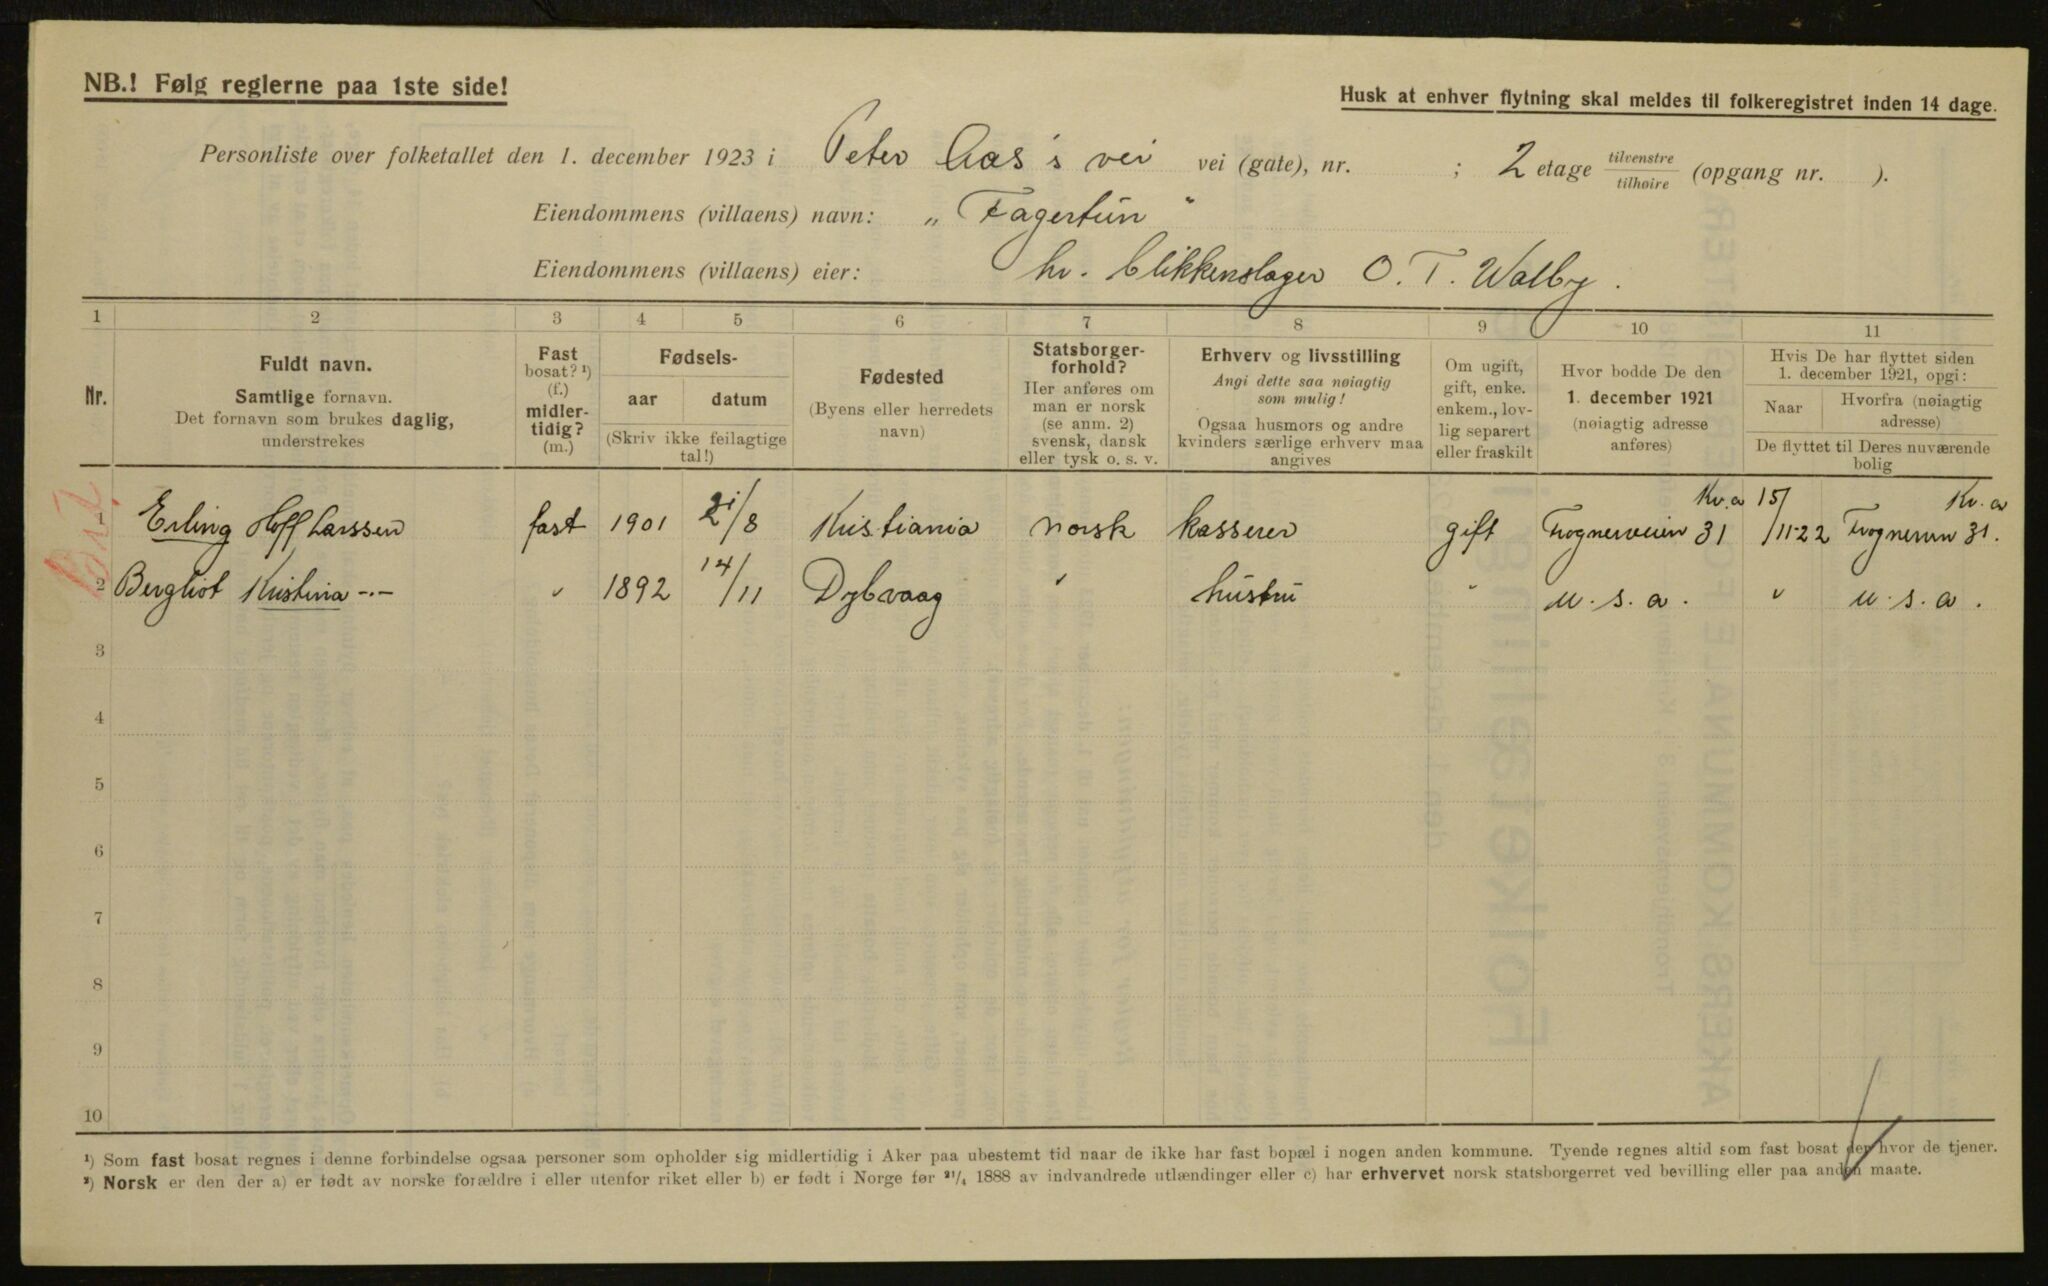 NB.! Følg reglerne paa 1ste side!
Husk at enhver flytning skal meldes til folkeregistret inden 14 dage.
Personliste over folketallet den 1. december 1923 i Peter Aas's vei vei (gate), nr. ; 2 etage tilvenstre tilhøire (opgang nr. ).
Eiendommens (villaens) navn: „Fagertun"
Eiendommens (villaens) eier: hr. blikkenslager O. T. Walby.
1 2 3 4 5 6 7 8 9 10 11
Nr.
Fuldt navn.
Samtlige fornavn.
Det fornavn som brukes daglig,
understrekes
Fast
bosat? ¹)
(f.)
midler-
tidig?
(m.)
Fødsels-
aar datum
(Skriv ikke feilagtige
tal!)
Fødested
(Byens eller herredets
navn)
Statsborger-
forhold?
Her anføres om
man er norsk
(se anm. 2)
svensk, dansk
eller tysk o. s. v.
Erhverv og livsstilling
Angi dette saa nøiagtig
som mulig!
Ogsaa husmors og andre
kvinders særlige erhverv maa
angives
Om ugift,
gift, enke.
enkem., lov-
lig separert
eller fraskilt
Hvor bodde De den
1. december 1921
(nøiagtig adresse
anføres)
Hvis De har flyttet siden
1. december 1921, opgi:
Naar
Hvorfra (nøiagtig
adresse)
De flyttet til Deres nuværende
bolig
1 Erling Hoff Larssen fast 1901 21/8 Kristiania norsk kasserer gift Frognerveien 31 Kr.a 15/11-22 Frognervn 31. Kr. a
2 Bergliot Kristina -"- " 1892 14/11 Dybvaag " hustru " u. s. a. " u. s. a.
3
4
5
6
7
8
9
10
¹) Som fast bosat regnes i denne forbindelse ogsaa personer som opholder sig midlertidig i Aker paa ubestemt tid naar de ikke har fast bopæl i nogen anden kommune. Tyende regnes altid som fast bosat der hvor de tjener.
²) Norsk er den der a) er født av norske forældre i eller utenfor riket eller b) er født i Norge før 21/4 1888 av indvandrede utlændinger eller c) har erhvervet norsk statsborgerret ved bevilling eller paa anden maate.